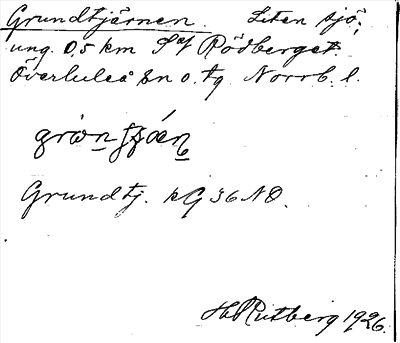 Grundtjärnen. Liten sjö,
ung. 0,5 km S of Rödberget.
Överluleå sn o. tg Norrb. l.
Grundtj. kG 36 NO.
H. Rutberg 1926.